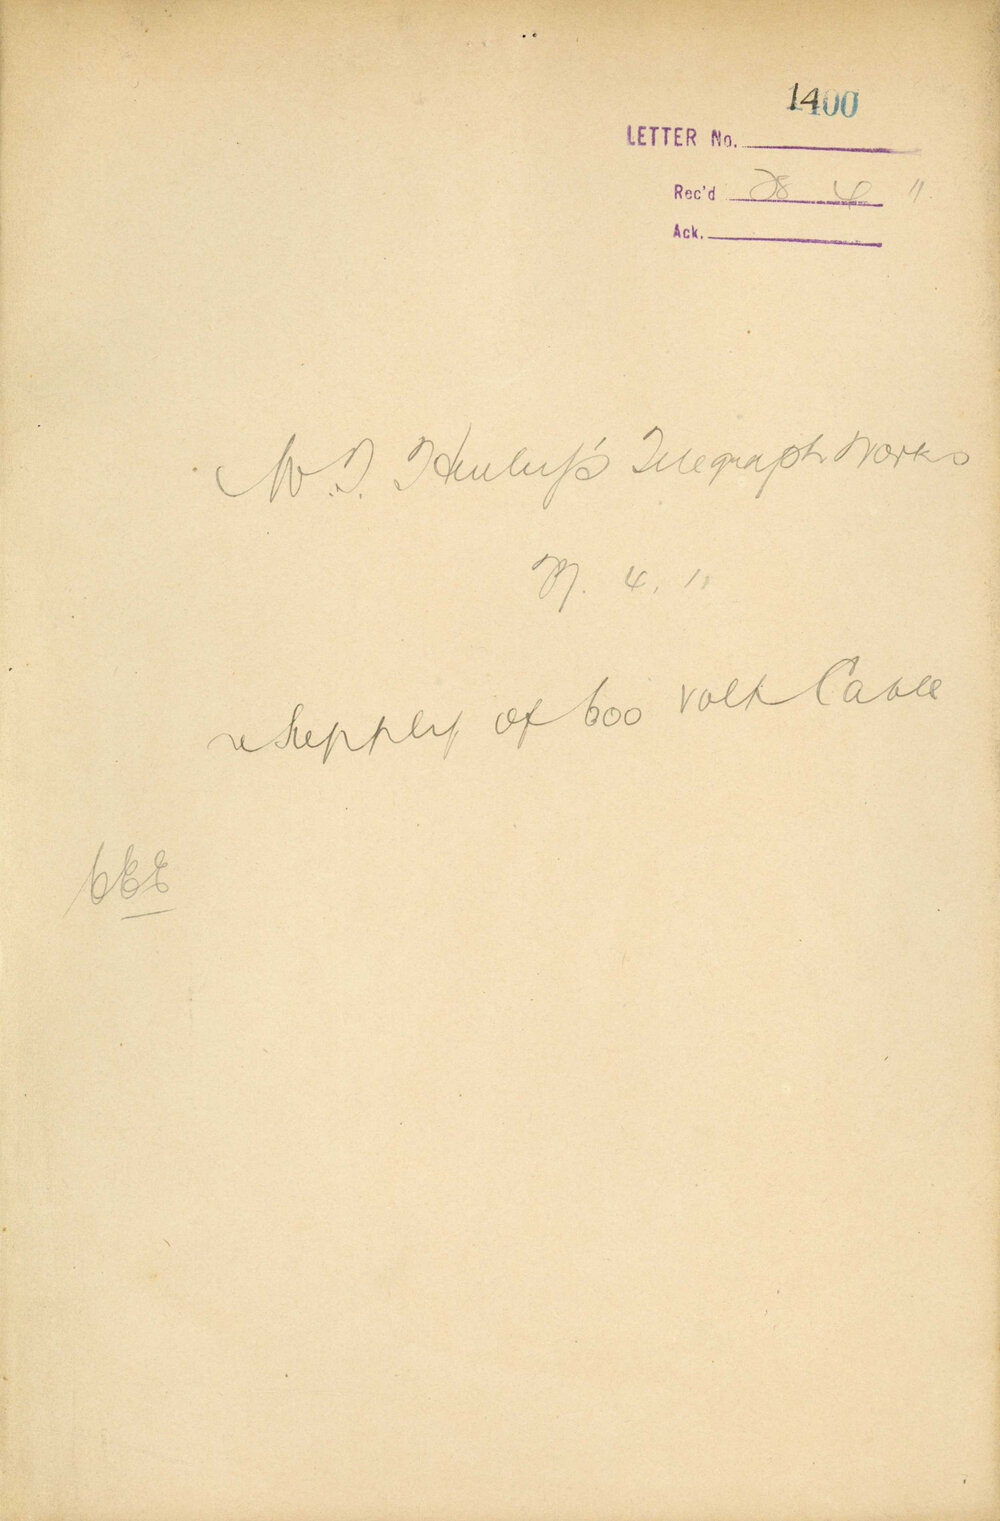 1400
LETTER No.
Rec'd 28 4 11
Ack.
W. T. Henley's Telegraph Works
27. 4. 11
re Supply of 600 volt Cable